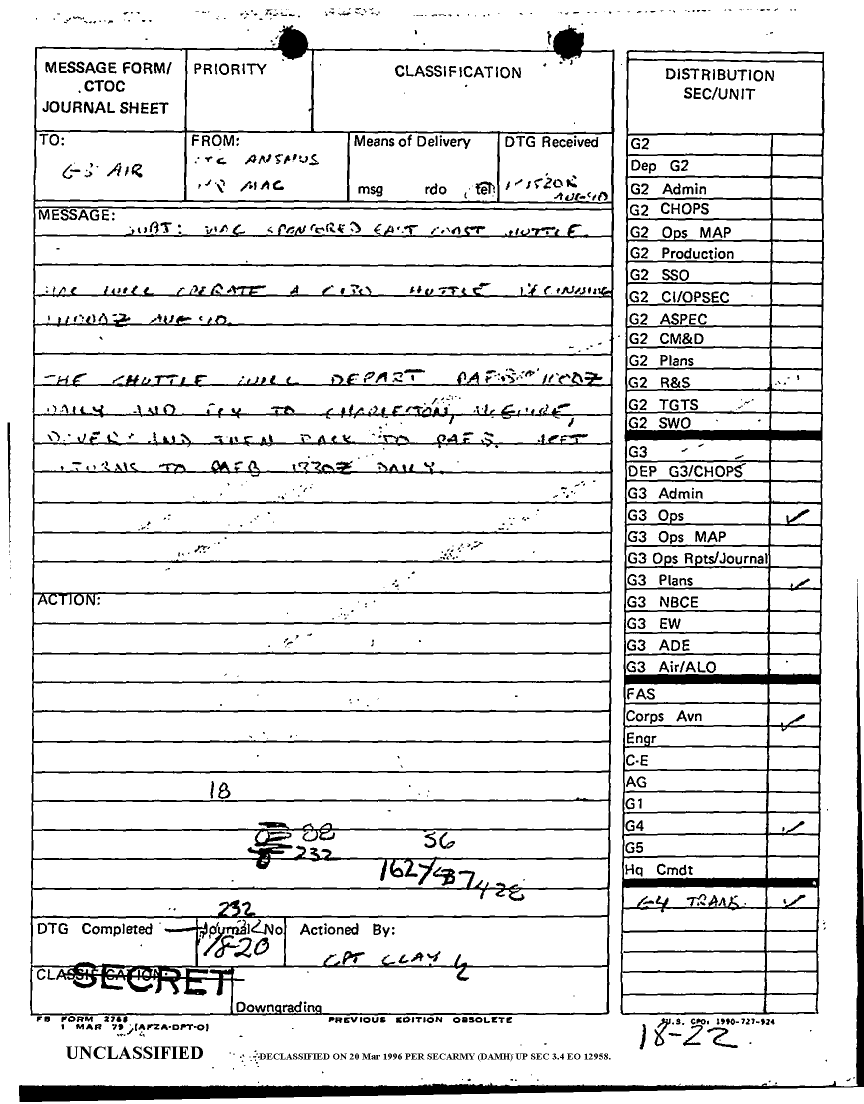 MESSAGE FORM/
CTOC
JOURNAL SHEET
PRIORITY
CLASSIFICATION
TO:
G-3 AIR
FROM:
LTC ANSMUS
HQ MAC
Means of Delivery
msg rdo tel
DTG Received
AUG 90
MESSAGE:
SUBJ: MAC SPONSORED EAST COAST SHUTTLE.
MAC WILL OPERATE A C130 SHUTTLE BEGINNING
AUG 90.
THE SHUTTLE WILL DEPART PAFB 1100Z
DAILY AND FLY TO CHARLESTON, McGUIRE,
DOVER AND THEN BACK TO PAFB. ACFT
RETURNS TO PAFB 1330Z DAILY.
ACTION:
18
88
232
56
232
DTG Completed
Journal No
18-20
Actioned By:
CPT CLAY
CLASSIFICATION:
SECRET
Downgrading
FB FORM 2768
1 MAR 79 (AFZA-DPT-O)
PREVIOUS EDITION OBSOLETE
UNCLASSIFIED
DECLASSIFIED ON 20 Mar 1996 PER SECARMY (DAMH) UP SEC 3.4 EO 12958.
DISTRIBUTION
SEC/UNIT
G2
Dep G2
G2 Admin
G2 CHOPS
G2 Ops MAP
G2 Production
G2 SSO
G2 CI/OPSEC
G2 ASPEC
G2 CM&D
G2 Plans
G2 R&S
G2 TGTS
G2 SWO
G3
DEP G3/CHOPS
G3 Admin
G3 Ops
G3 Ops MAP
G3 Ops Rpts/Journal
G3 Plans
G3 NBCE
G3 EW
G3 ADE
G3 Air/ALO
FAS
Corps Avn
Engr
C-E
AG
G1
G4
G5
Hq Cmdt
G4 TRANS.
U.S. GPO: 1990-727-924
18-22